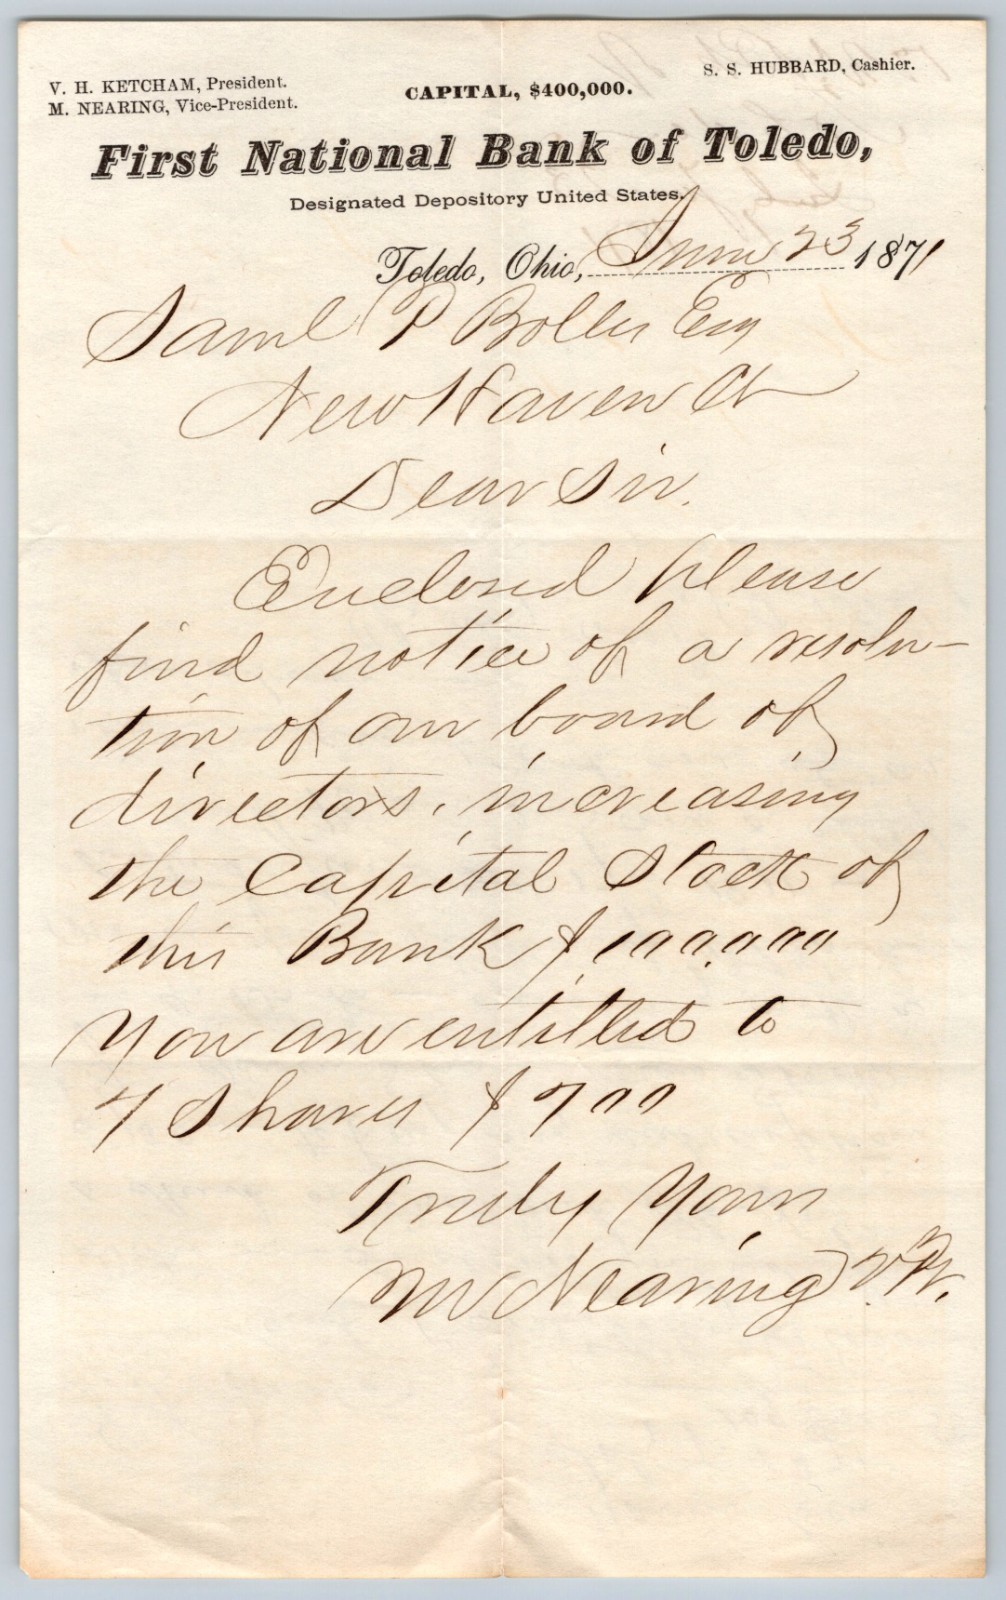 V. H. KETCHAM, President.
M. NEARING, Vice-President.
CAPITAL, $400,000.
S. S. HUBBARD, Cashier.
First National Bank of Toledo,
Designated Depository United States.
Toledo, Ohio, June 23 1871
Saml P Bolles Esq
New Haven Ct
Dear Sir.
Enclosed please
find notice of a resolu-
tion of our board of
directors, increasing
the Capital Stock of
this Bank $100,000
You are entitled to
7 Shares $700
Truly Yours
M Nearing V. P.